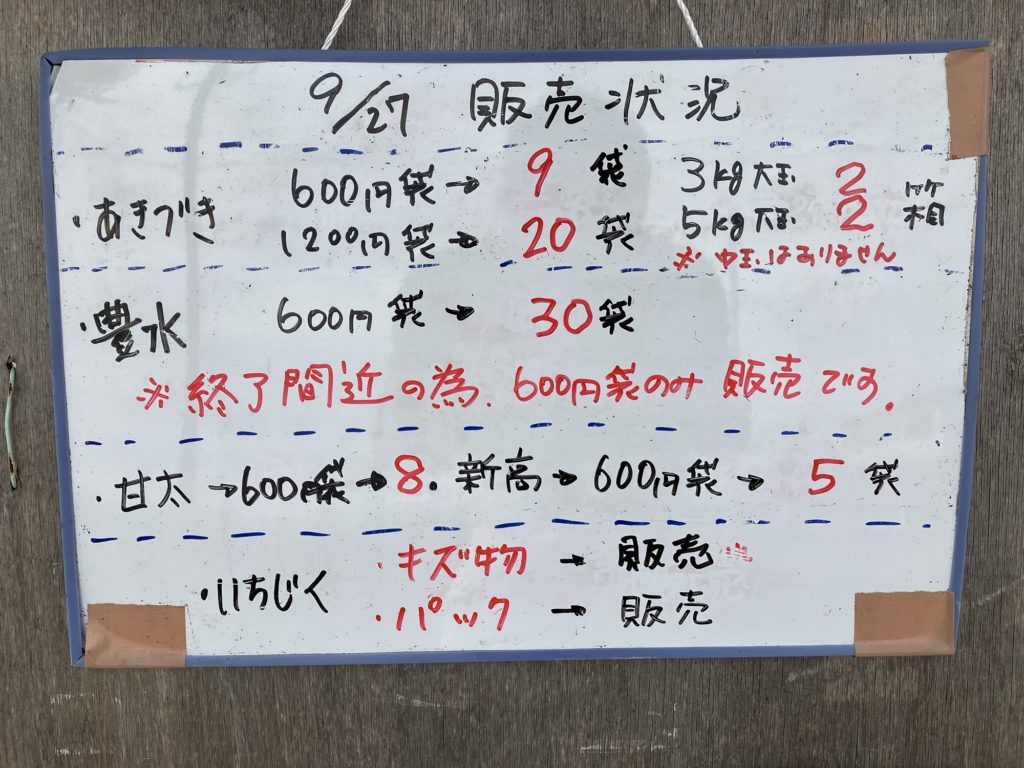 9/27 販売状況
・あきづき 600円袋→ 9 袋 3kg大玉 2 箱
1200円袋→ 20 袋 5kg大玉 2
※中玉はありません
・豊水 600円袋→ 30袋
※終了間近の為、600円袋のみ販売です。
・甘太→600円袋→8・新高→600円袋→ 5 袋
・いちじく ・キズ物→販売
・パック→販売